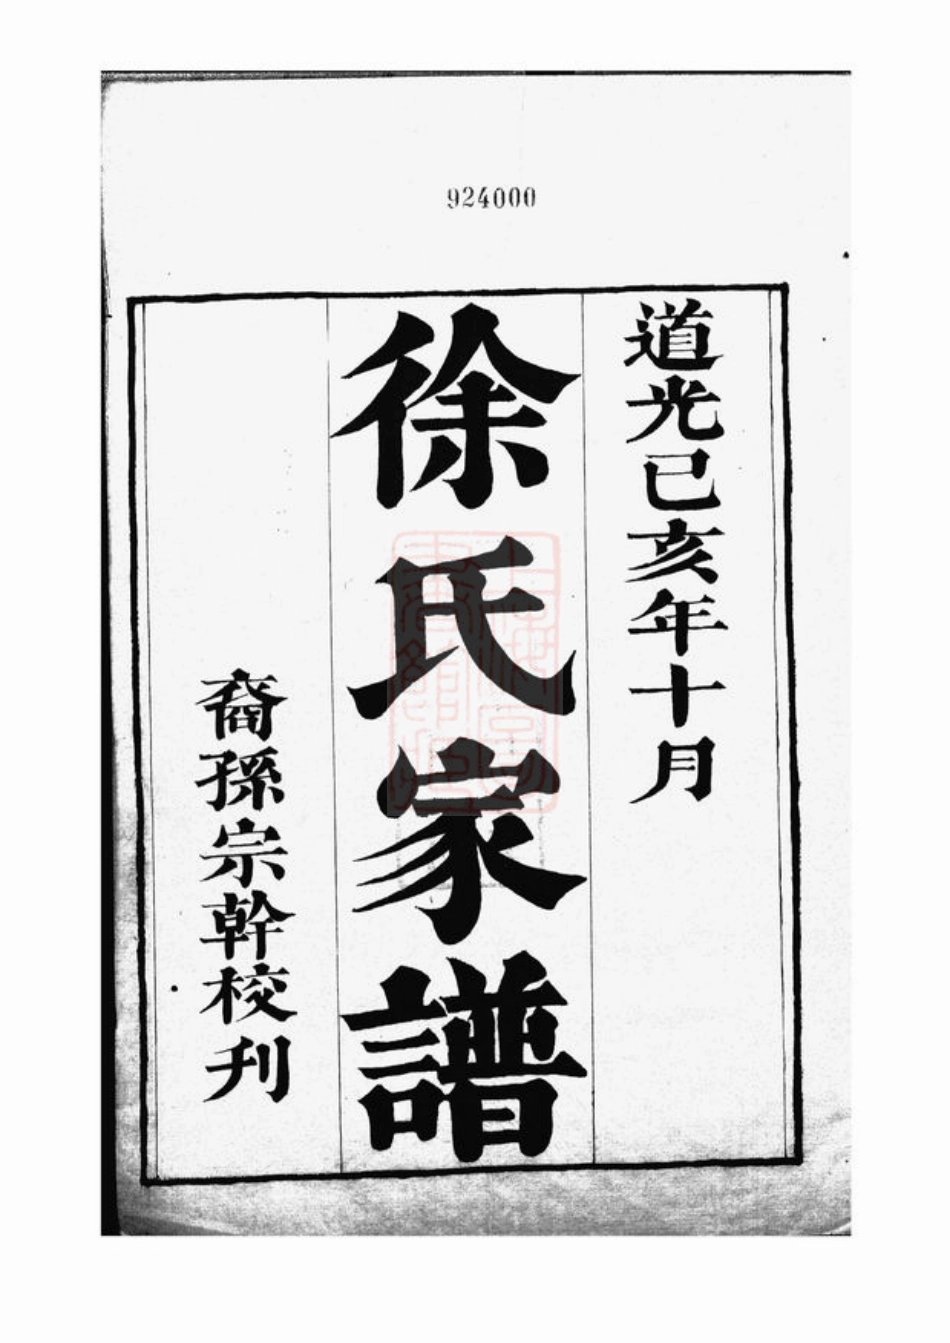 924000
道光己亥年十月
徐氏家譜
裔孫宗幹校刊